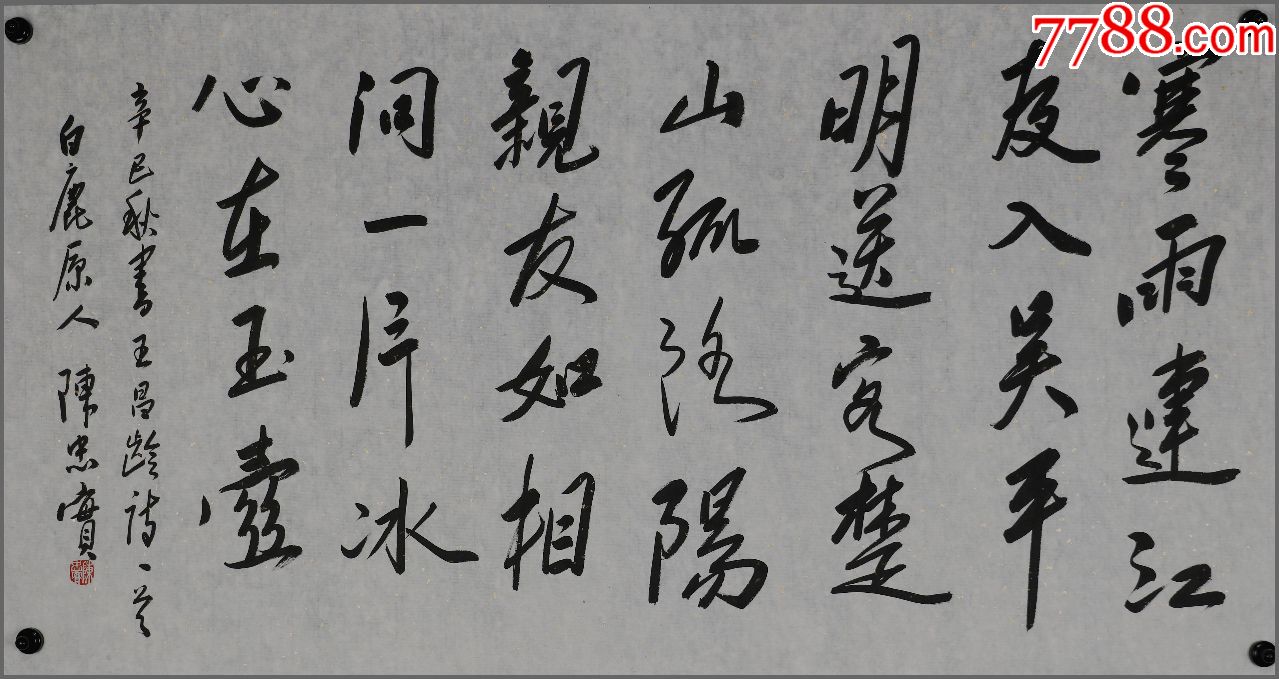 7788.com
寒雨連江
夜入吴平
明送客楚
山孤洛陽
親友如相
问一片冰
心在玉壺
辛巳秋書王昌齡诗一首
白鹿原人 陳忠實